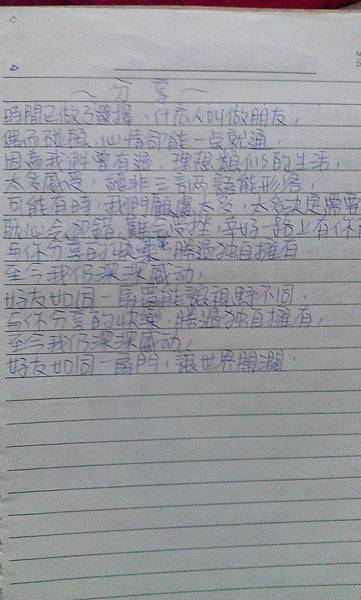 ～分享～
時間已做了選擇，什么人叫做朋友，
偶而碰頭，心情却能一点就通，
因為我們曾有過，理想類似的生活，
太多感受，絕非三言两語能形容，
可能有時，我們顧慮太多，太多決定需要
我心会犯錯，難免受挫，幸好一路上有你
与你分享的快樂，勝過独自擁有，
至今我仍深深感动，
好友如同一扇窗能讓視野不同，
与你分享的快樂，勝過独自擁有，
至今我仍深深感动，
好友如同一扇門，讓世界開濶．